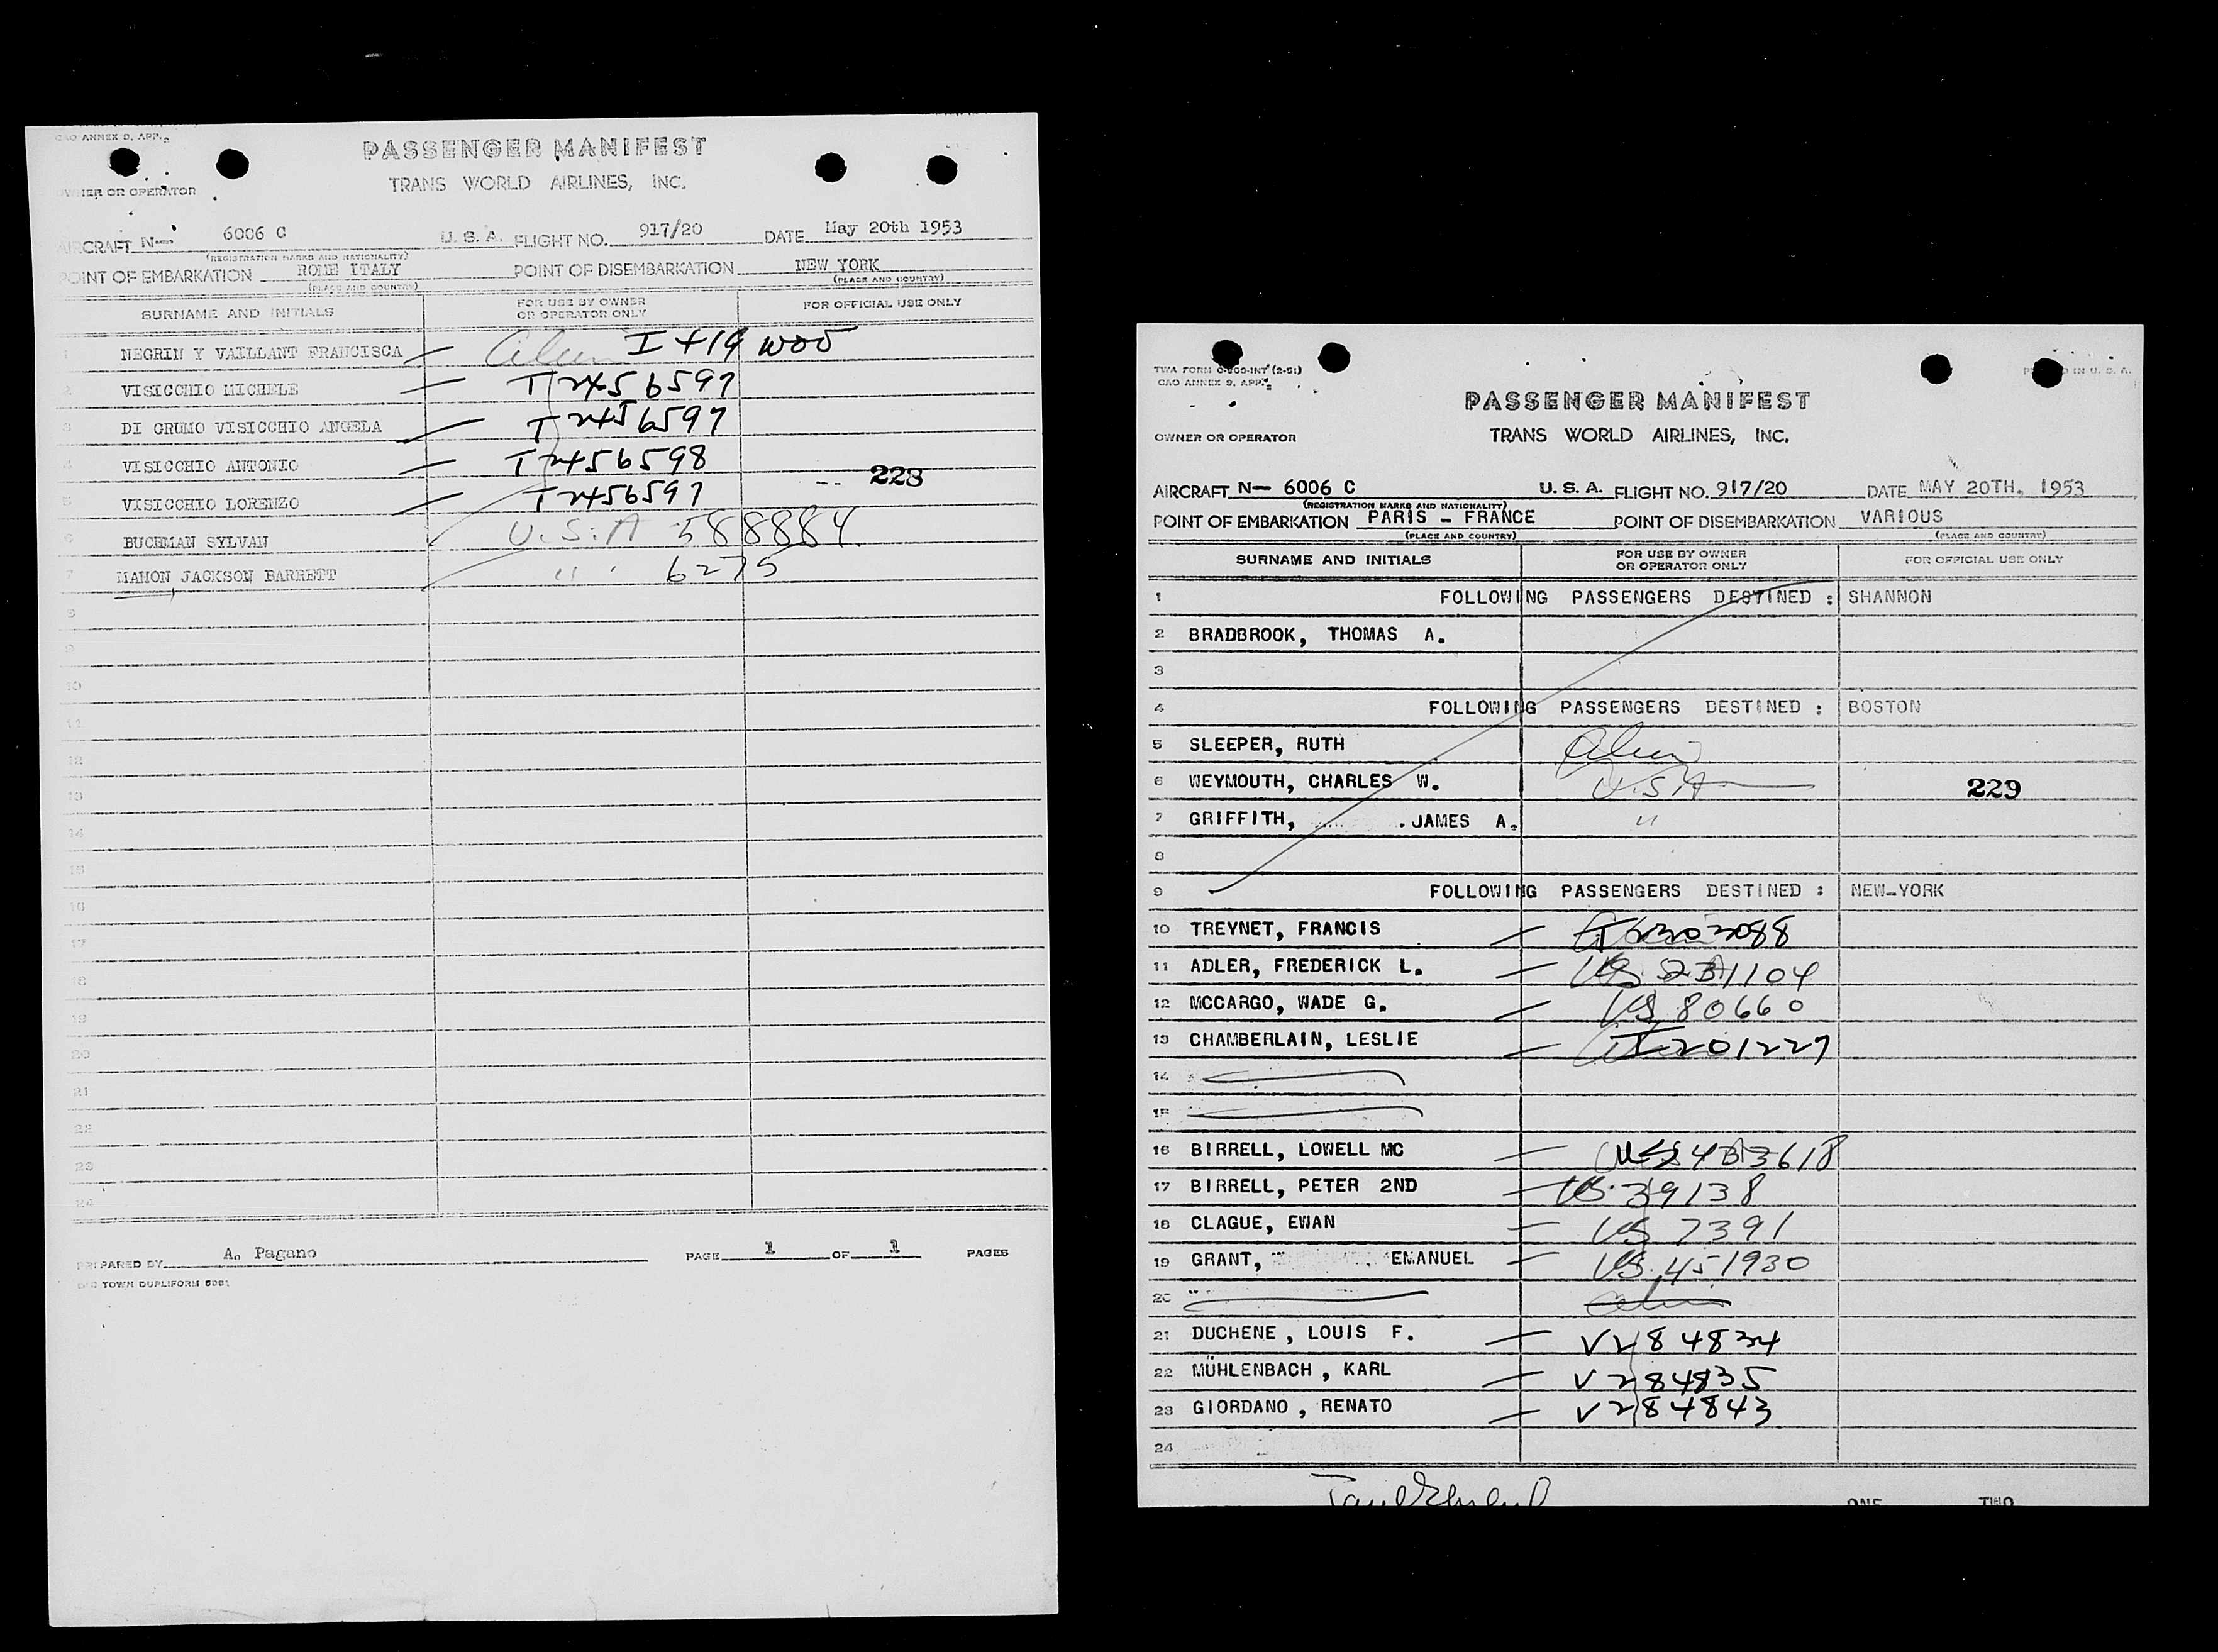 CAO ANNEX 9. APP.
PASSENGER MANIFEST
TRANS WORLD AIRLINES, INC.
OWNER OR OPERATOR
AIRCRAFT N— 6006 C U. S. A. FLIGHT NO. 917/20 DATE May 20th 1953
(REGISTRATION MARKS AND NATIONALITY)
POINT OF EMBARKATION ROME ITALY POINT OF DISEMBARKATION NEW YORK
(PLACE AND COUNTRY) (PLACE AND COUNTRY)
SURNAME AND INITIALS FOR USE BY OWNER OR OPERATOR ONLY FOR OFFICIAL USE ONLY
1 NEGRIN Y VAILLANT FRANCISCA — Alien
2 VISICCHIO MICHELE — T 2456597
3 DI GRUMO VISICCHIO ANGELA — T 2456597
4 VISICCHIO ANTONIO — T 2456598
228
5 VISICCHIO LORENZO — T 2456597
6 BUCHMAN SYLVAN U.S.A 588884
7 MAHON JACKSON BARRETT " 6275
8
9
10
11
12
13
14
15
16
17
18
19
20
21
22
23
24
PREPARED BY A. Pagano PAGE 1 OF 1 PAGES
TOWN DUPLIFORM 5991
TWA FORM O-800-INT (2-51)
CAO ANNEX 9. APP. PRINTED IN U. S. A.
PASSENGER MANIFEST
OWNER OR OPERATOR TRANS WORLD AIRLINES, INC.
AIRCRAFT N— 6006 C U. S. A. FLIGHT NO. 917/20 DATE MAY 20TH. 1953
(REGISTRATION MARKS AND NATIONALITY)
POINT OF EMBARKATION PARIS - FRANCE POINT OF DISEMBARKATION VARIOUS
(PLACE AND COUNTRY) (PLACE AND COUNTRY)
SURNAME AND INITIALS FOR USE BY OWNER OR OPERATOR ONLY FOR OFFICIAL USE ONLY
1 FOLLOWING PASSENGERS DESTINED : SHANNON
2 BRADBROOK, THOMAS A.
3
4 FOLLOWING PASSENGERS DESTINED : BOSTON
5 SLEEPER, RUTH Alien
6 WEYMOUTH, CHARLES W. U.S.A 229
7 GRIFFITH, JAMES A. "
8
9 FOLLOWING PASSENGERS DESTINED : NEW-YORK
10 TREYNET, FRANCIS —
11 ADLER, FREDERICK L. — US
12 MCCARGO, WADE G. — US 80660
13 CHAMBERLAIN, LESLIE — 201227
14
15
16 BIRRELL, LOWELL MC —
17 BIRRELL, PETER 2ND — US. 39138
18 CLAGUE, EWAN — US 7391
19 GRANT, EMANUEL — US. 451930
20
21 DUCHENE , LOUIS F. — V 284834
22 MÜHLENBACH , KARL — V 284835
23 GIORDANO , RENATO — V 284843
24
ONE TWO